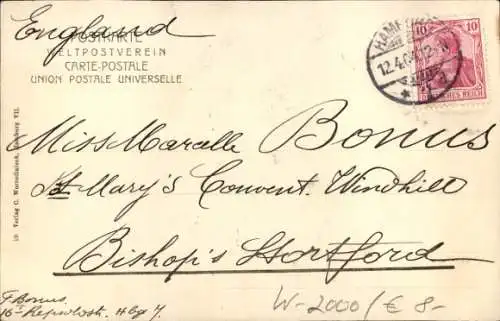 England
POSTKARTE
WELTPOSTVEREIN
CARTE-POSTALE
UNION POSTALE UNIVERSELLE
HAMBURG
12.4.
10 10
DEUTSCHES REICH
Miss Marcelle Bonus
St Mary's Convent. Windhill
Bishop's Stortford
F Bonus.
16 I Repsoldstr. Hbg 7.
W-2000/€ 8-
Verlag C. Worzedialeck, Hamburg VII.